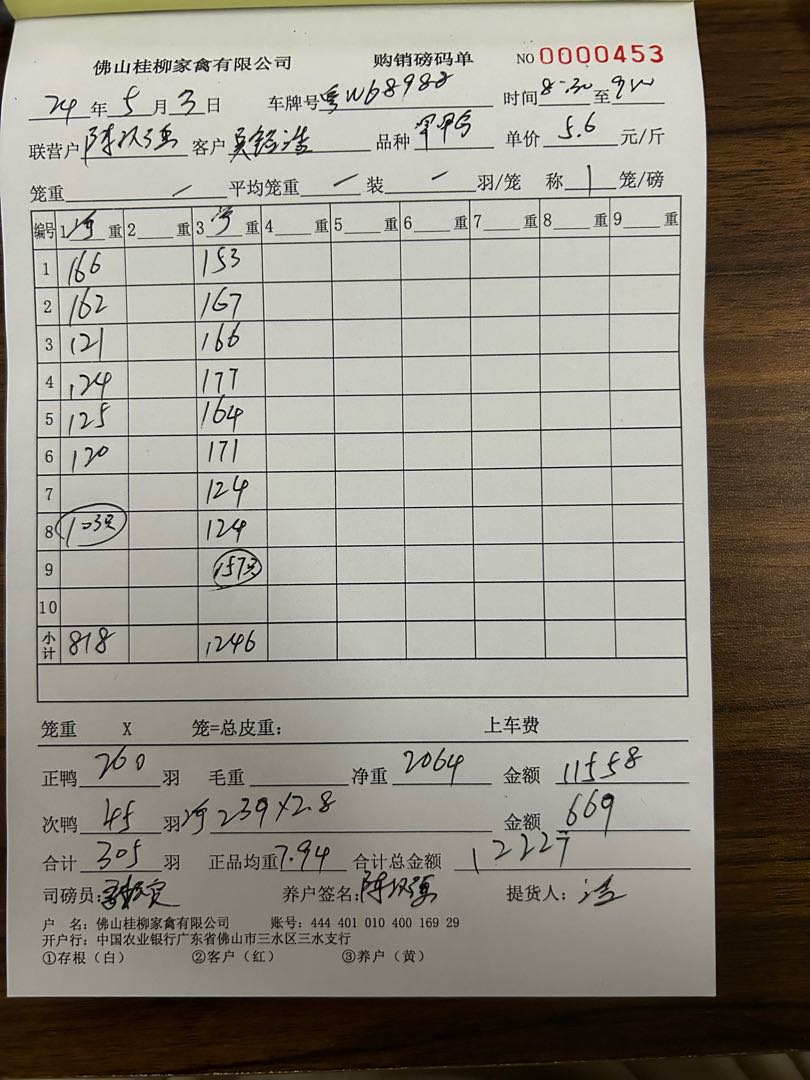 佛山桂柳家禽有限公司 购销磅码单 NO 0000453
24年5月3日 车牌号 粤W68988 时间 8:30 至
联营户 陈 客户 吴 品种 单价 5.6 元/斤
笼重 — 平均笼重 — 装 — 羽/笼 称 1 笼/磅
编号 1 净 重 2 重 3 净 重 4 重 5 重 6 重 7 重 8 重 9 重
1 166 153
2 162 167
3 121 166
4 124 177
5 125 164
6 120 171
7 124
8 103只 124
9 157只
10
小计 818 1246
笼重 X 笼=总皮重: 上车费
正鸭 260 羽 毛重 净重 2064 金额 11558
次鸭 45 羽 净 239×2.8 金额 669
合计 305 羽 正品均重 7.94 合计总金额 12227
司磅员: 养户签名: 陈 提货人: 浩
户 名: 佛山桂柳家禽有限公司 账号: 444 401 010 400 169 29
开户行: 中国农业银行广东省佛山市三水区三水支行
①存根（白） ②客户（红） ③养户（黄）